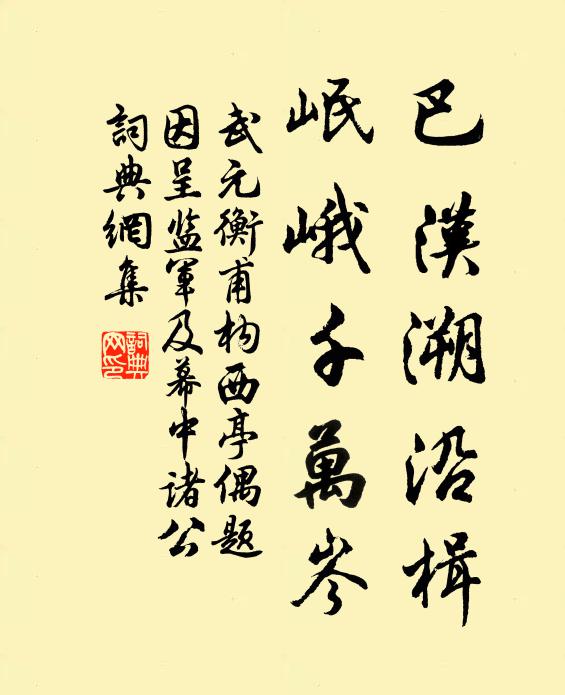 巴漢溯沿楫
岷峨千萬岑
武元衡甫构西亭偶題
因呈监軍及幕中诸公
詞典網集
詞典網印